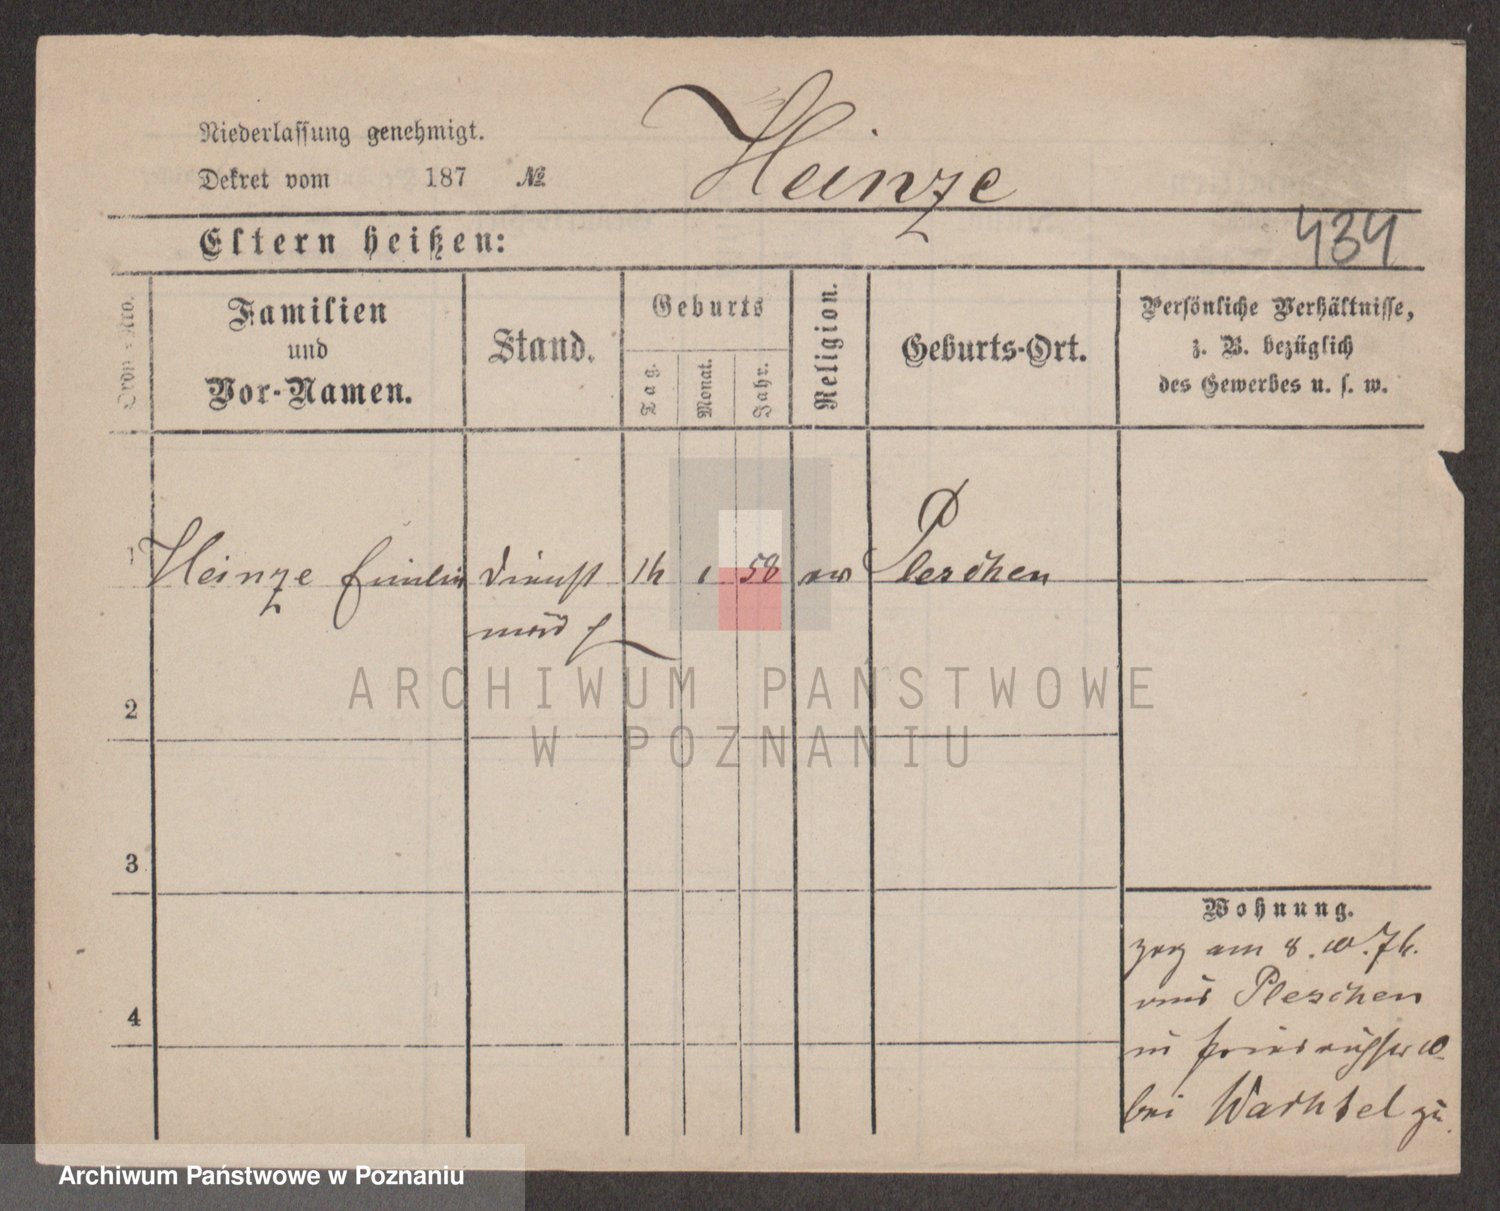 Heinze
Niederlassung genehmigt.
Dekret vom 187 №
434
Eltern heißen:
Ordn.-Nro.
Familien
und
Vor-Namen.
Stand.
Geburts
Tag.
Monat.
Jahr.
Religion.
Geburts-Ort.
Persönliche Verhältnisse,
z. B. bezüglich
des Gewerbes u. s. w.
1 Heinze Emilie Dienst 58 Pleschen
2
3
4
Wohnung.
zog am 8. 10. 76.
aus Pleschen
bei Wachtel zu
ARCHIWUM PAŃSTWOWE
W POZNANIU
Archiwum Państwowe w Poznaniu